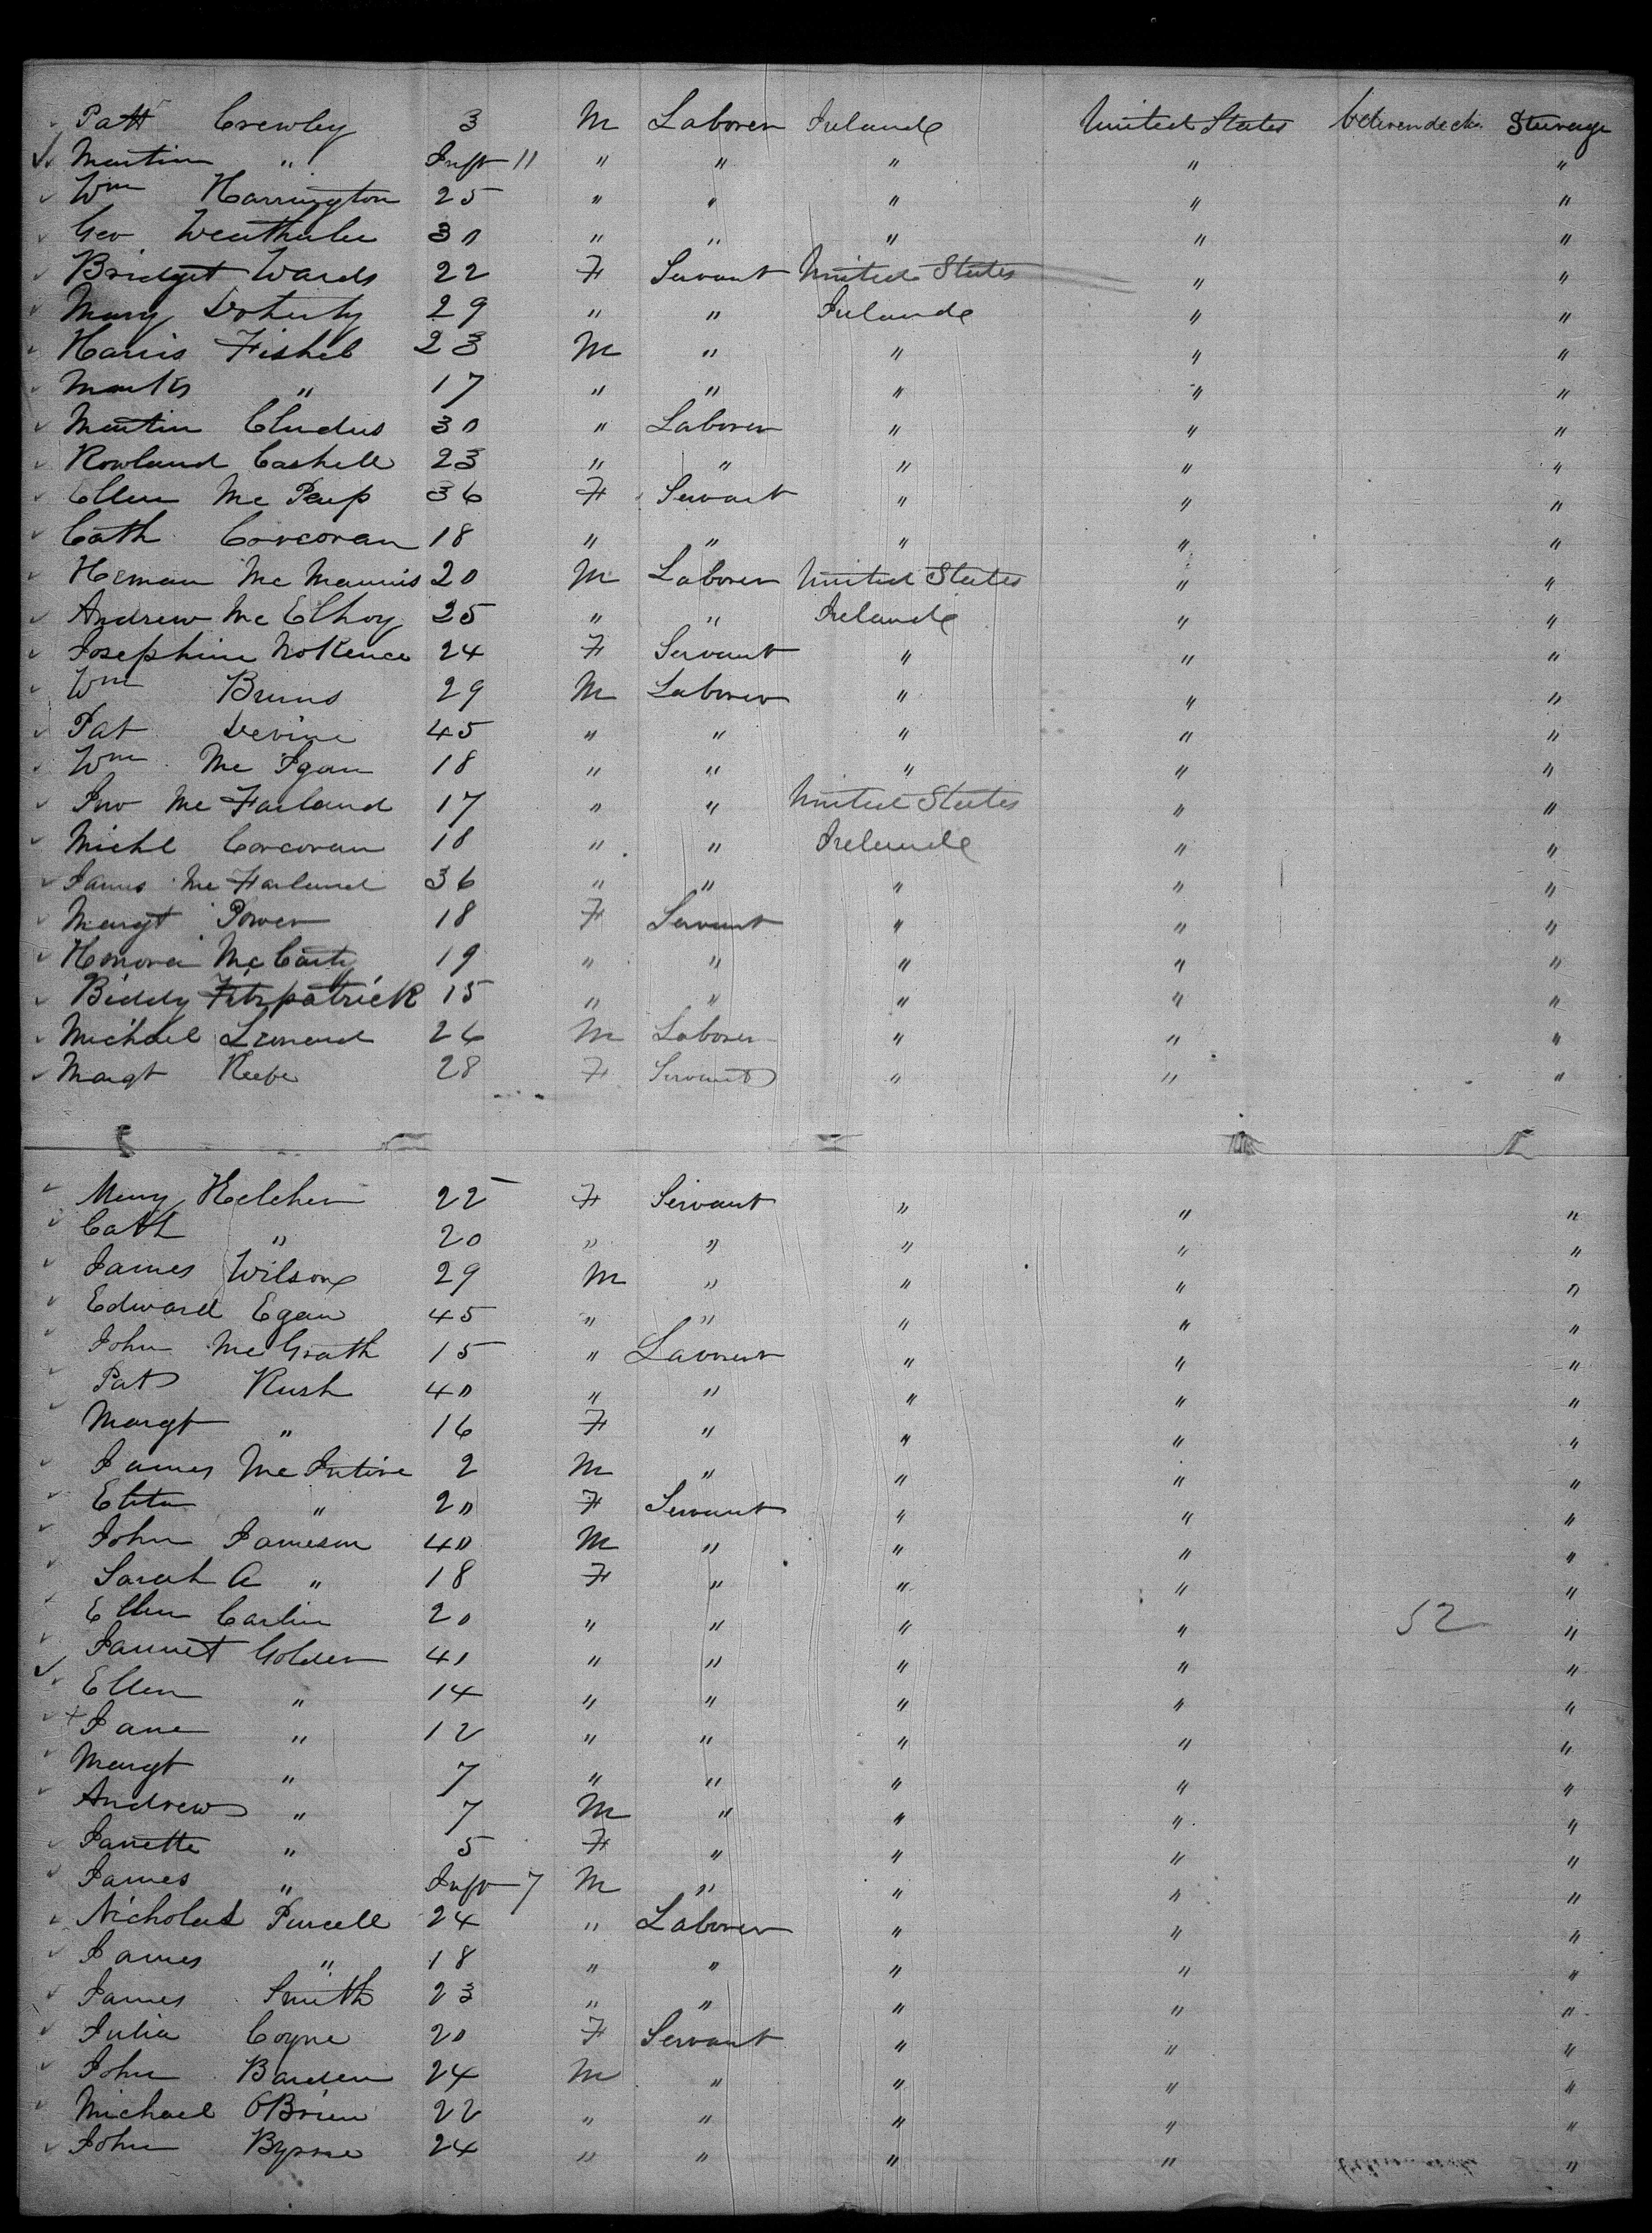 Patt Crewley 3 M Laborer Ireland United States between decks Steerage
Martin " Inft 11 " " " " "
Wm Harrington 25 " " " " "
Geo 30 " " " " "
Bridget Wards 22 F Servant United States " "
Mary Doherty 29 " " Ireland " "
Harris Fishel 23 M " " " "
Marks " 17 " " " " "
Martin 30 " Laborer " " "
Rowland Cashell 23 " " " " "
Ellen Mc 36 F Servant " " "
Cath Corcoran 18 " " " " "
Heman Mc Mannis 20 M Laborer United States " "
Andrew Mc Elhoy 25 " " Ireland " "
Josephine 24 F Servant " " "
Wm Bruns 29 M Laborer " " "
Pat Devine 45 " " " " "
Wm Mc Igan 18 " " " " "
Jno Mc Farland 17 " " United States " "
Michl Corcoran 18 " " Ireland " "
James Mc Farland 36 " " " " "
Margt Power 18 F Servant " " "
Honora Mc Carty 19 " " " " "
Biddy Fitzpatrick 15 " " " " "
Michael Lenard 26 M Laborer " " "
Margt Keefe 28 F Servant " " "
Mary Keleher 22 F Servant " " "
Cath " 20 " " " " "
James Wilson 29 M " " " "
Edward Egan 45 " " " " "
John McGrath 15 " Laborer " " "
Pat Rush 40 " " " " "
Margt " 16 F " " " "
James Mc Intire 2 M " " " "
" 20 F Servant " " "
John Jameson 40 M " " " "
Sarah A " 18 F " " " "
Ellen Carlin 20 " " " " 52 "
Jannet Golden 41 " " " " "
Ellen " 14 " " " " "
+ Jane " 12 " " " " "
Margt " 7 " " " " "
Andrew " 7 M " " " "
Janette " 5 F " " " "
James " Inft 7 M " " " "
Nicholas Purcell 24 " Laborer " " "
James " 18 " " " " "
James Smith 23 " " " " "
Julia Coyne 20 F Servant " " "
John Barden 24 M " " " "
Michael OBrien 22 " " " " "
John Byrne 24 " " " " "